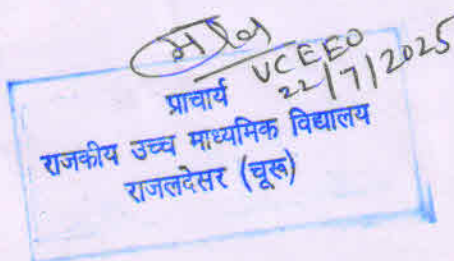 UCEEO
22/7/2025
प्राचार्य
राजकीय उच्च माध्यमिक विद्यालय
राजलदेसर (चूरू)